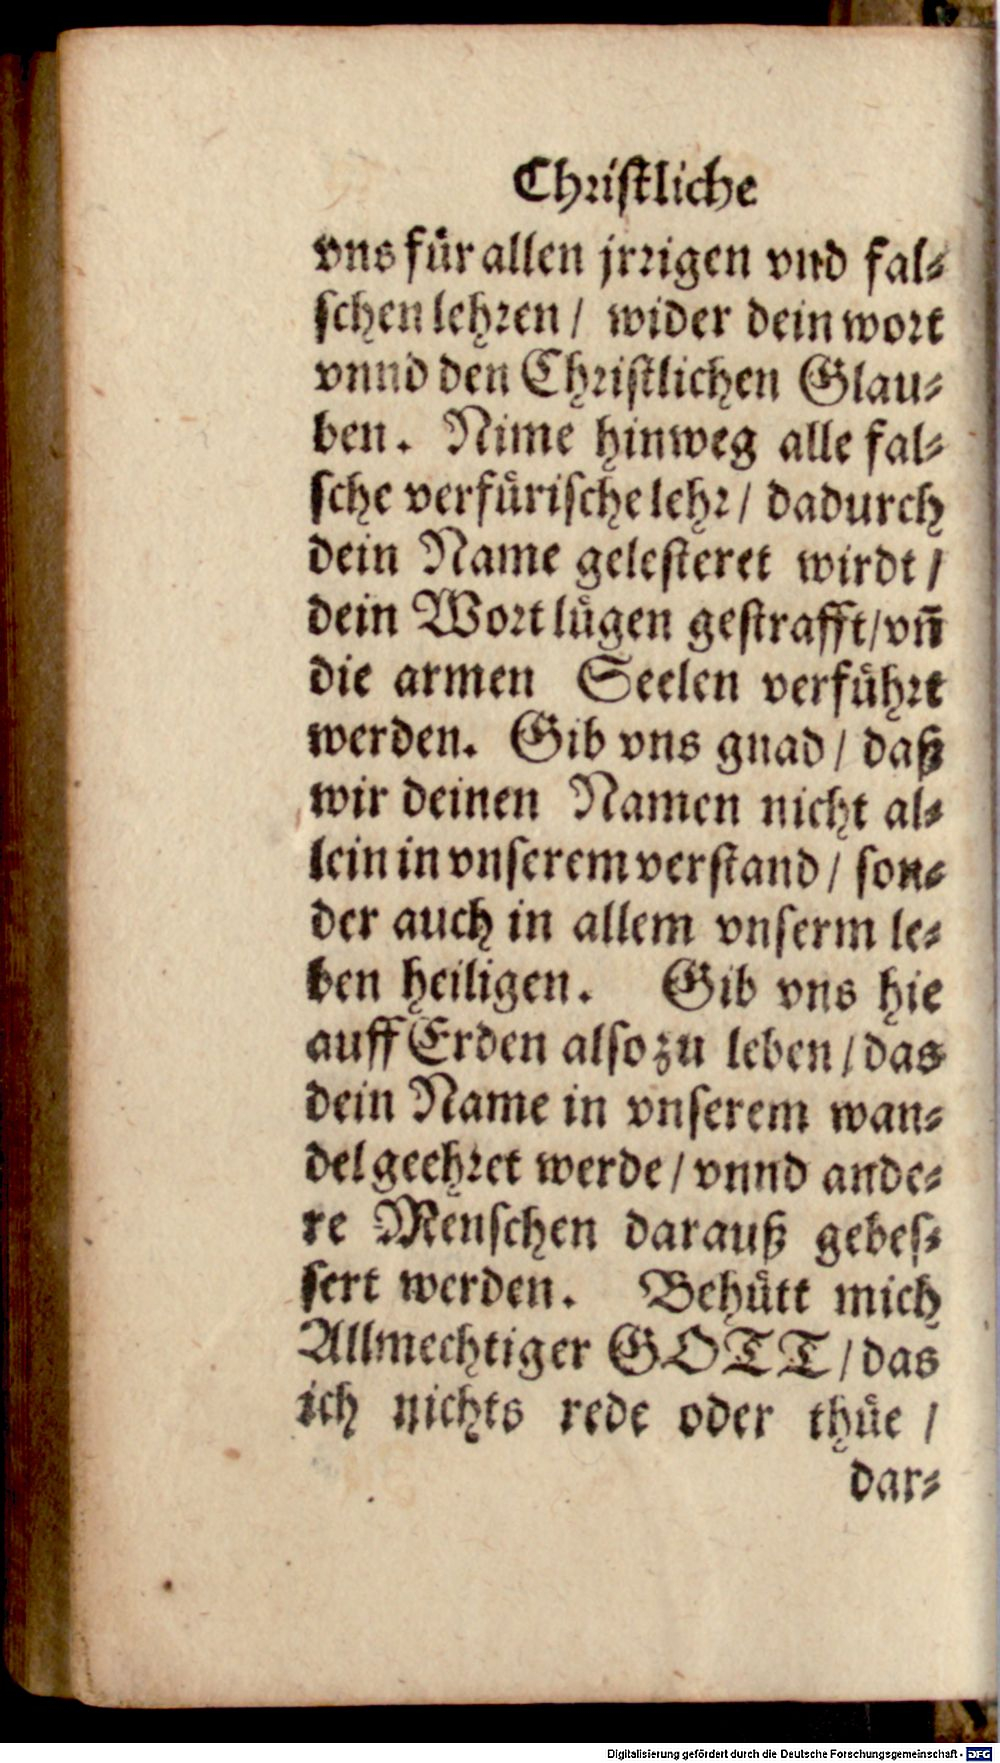 Christliche
vns für allen jrrigen vnd fal⸗
schen lehren / wider dein wort
vnnd den Christlichen Glau⸗
ben. Nime hinweg alle fal⸗
sche verfürische lehr / dadurch
dein Name gelesteret wirdt /
dein Wort lügen gestrafft / vn̄
die armen Seelen verführt
werden. Gib vns gnad / daß
wir deinen Namen nicht al⸗
lein in vnserem verstand / son⸗
der auch in allem vnserm le⸗
ben heiligen. Gib vns hie
auff Erden also zu leben / das
dein Name in vnserem wan⸗
del geehret werde / vnnd ande⸗
re Menschen darauß gebes⸗
sert werden. Behütt mich
Allmechtiger GOTT / das
ich nichts rede oder thüe /
dar⸗
Digitalisierung gefördert durch die Deutsche Forschungsgemeinschaft - DFG